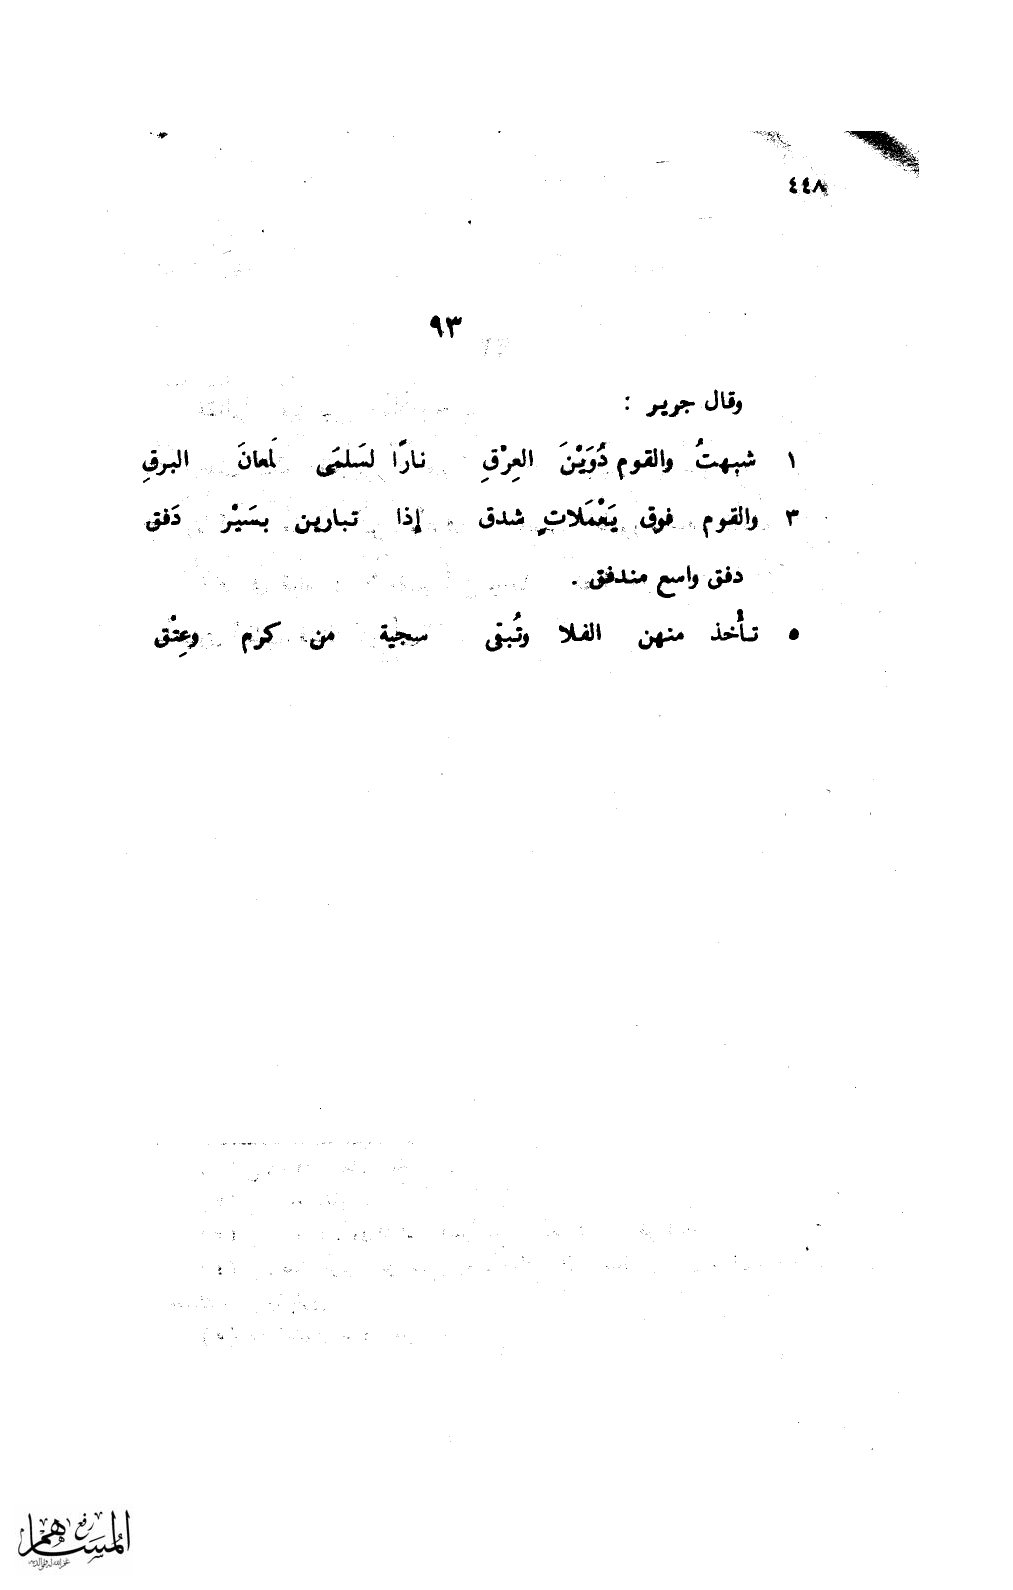 ٤٤٨
٩٣
وقال جرير :
١ شبهتُ والقوم دُوَيْنَ العِرْقِ نارًا لسَلمَى لَمعانَ البرقِ
٣ والقوم فوق يَعْمَلاتٍ شدق إذا تبارين بسَيْرٍ دَفق
دفق واسع مندفق .
٥ تأُخذ منهن الفلا وتُبقى سجية من كرم وعِتْق
رفع
المساهم